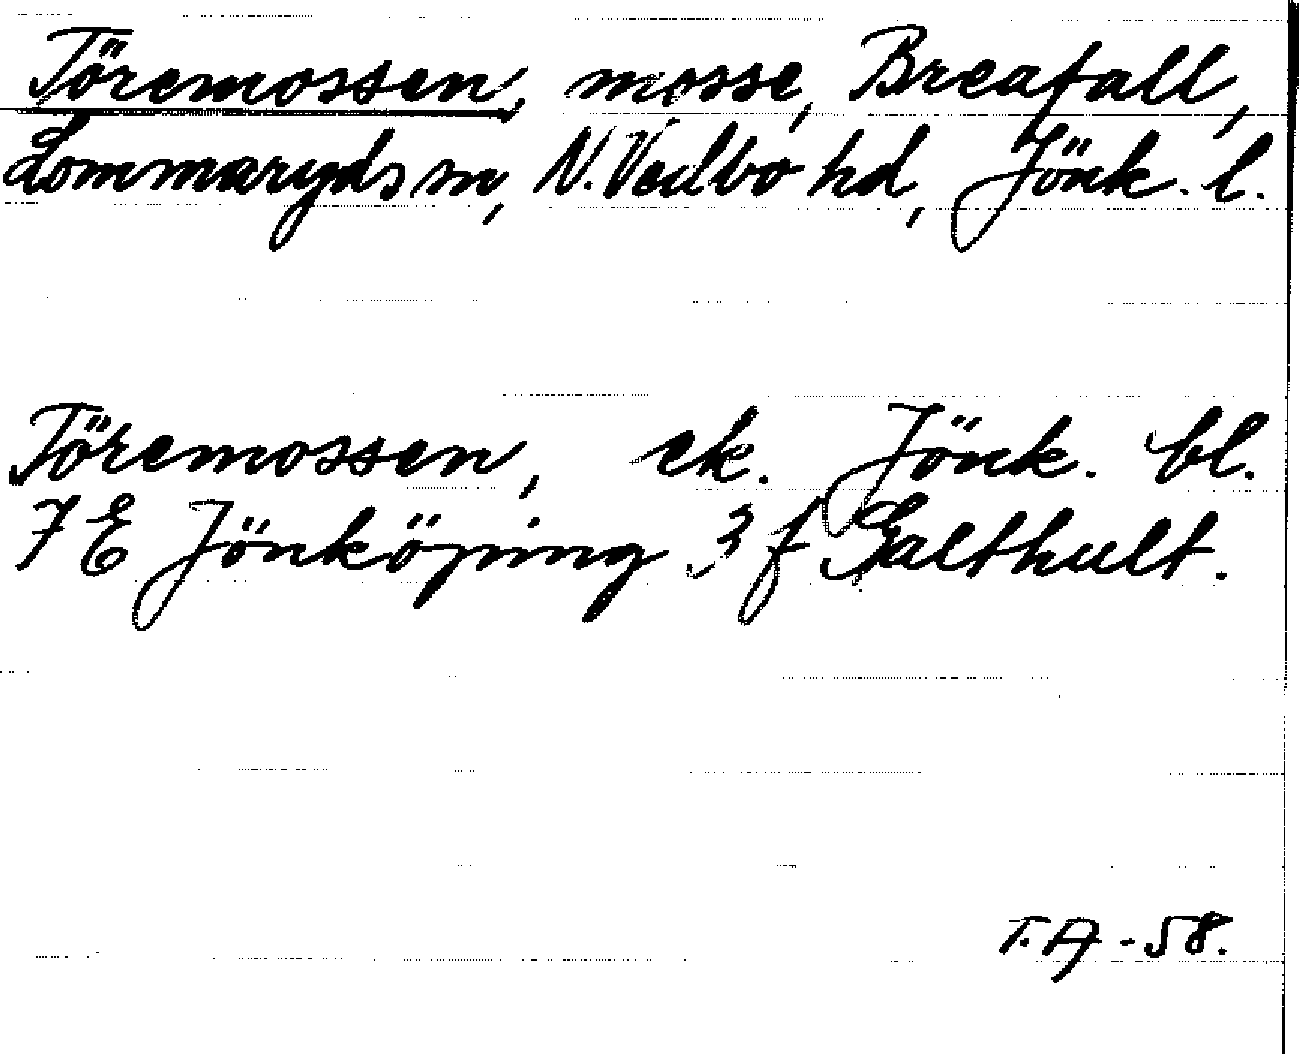 Töremossen, mosse, Breafall,
Lommaryds sn, N. Vedbo hd, Jönk. l.
Töremossen, ek. Jönk. bl.
7 E Jönköping 3 f Galthult.
T. A -58.